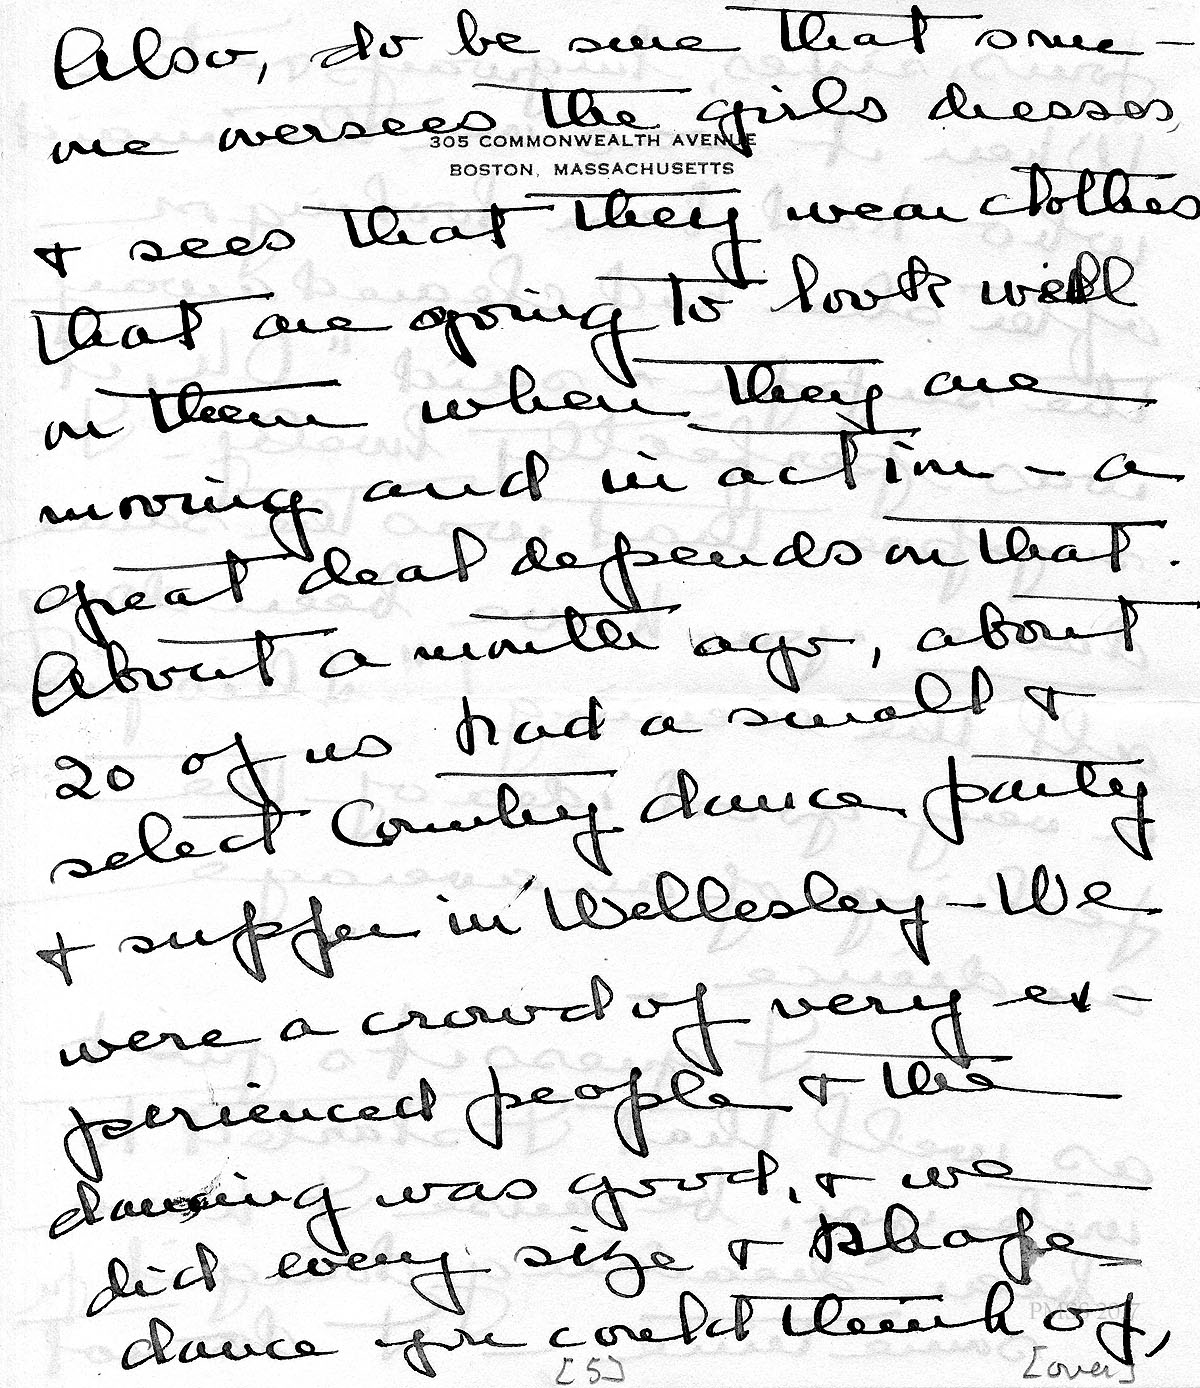 Also, do be sure that some-
one oversees the girls dresses,
305 COMMONWEALTH AVENUE
BOSTON, MASSACHUSETTS
+ sees that they wear clothes
that are going to look well
on them when they are
moving and in action – a
great deal depends on that.
About a month ago, about
20 of us had a small +
select Country dance party
+ supper in Wellesley – We
were a crowd of very ex-
perienced people + the
dancing was good, + we
did every size + shape
dance you could think of,
[5] [over]